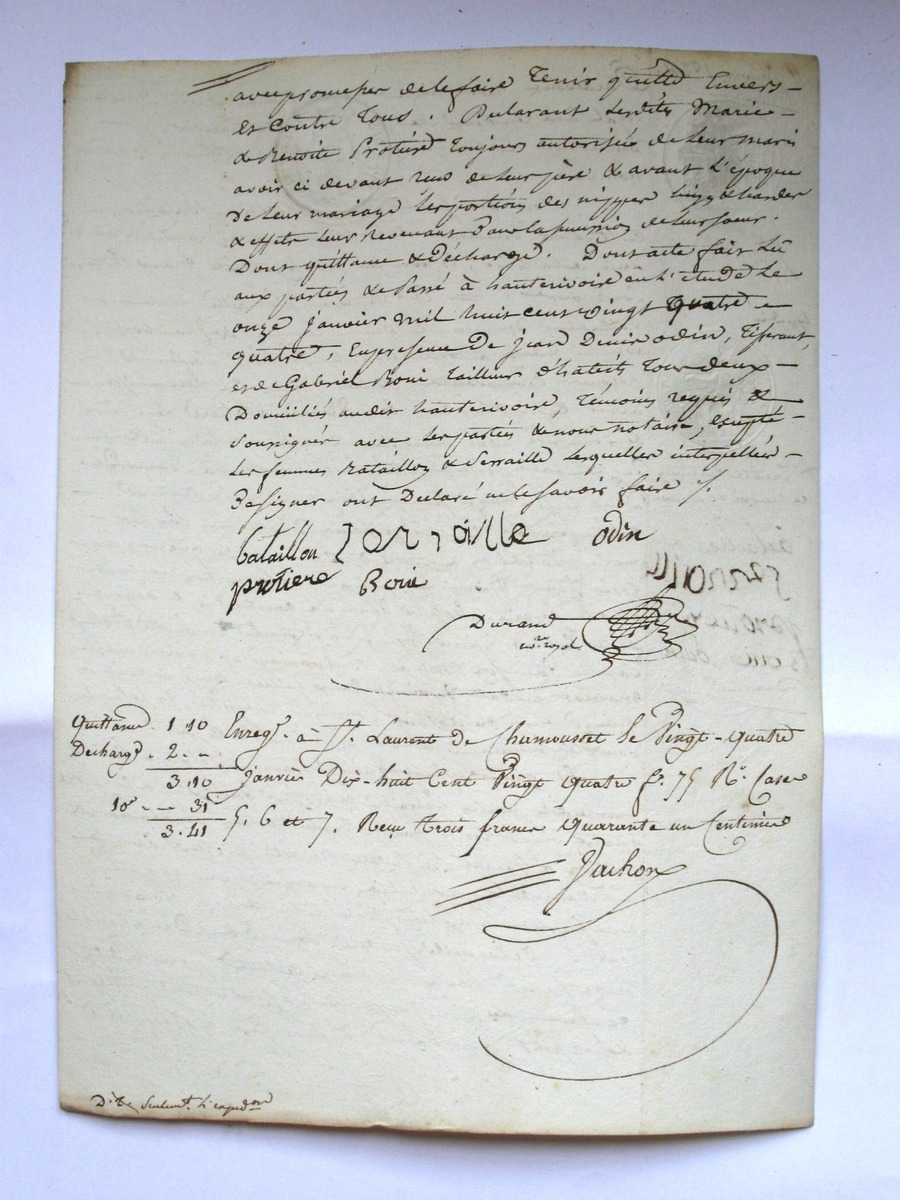 avec promesse de le faire tenir quitte envers
et contre tous. Déclarant lesdites Marie
& Benoite Protière toujours autorisée de leur maris
avoir ci devant reçu de leur père & avant l'époque
de leur mariage les portions des nippes linge & hardes
& effets leur revenant dans la succession de leur soeur.
Dont quittance & décharge. Dont acte fait lû
aux parties & Passé à hauterivoire en l'étude le
onze janvier mil huit cent vingt quatre
quatre, en presence de jean Denis odin, tisserant,
et de Gabriel Boui tailleur d'habits tous deux
Domiciliés audit hauterivoire, témoins requis &
soussignés avec les parties & nous notaire, excepté
les femmes Bataillon & Serraille lesquelles interpellées
De signer ont Déclaré ne le savoir faire /.
bataillon Serraille odin
protiere Boui
Durand
n.re royal
Quittance 1 10 Enreg.é à S.t Laurent De Chamousset le Vingt-quatre
Decharge . 2 . -
3.10 Janvier Dix-huit Cent Vingt quatre f.o 75 R.o Case
10e - - 31
3.41 5. 6 et 7. Reçu trois francs quarante un Centimes
Vachon
D. seulem.t l'exped.on